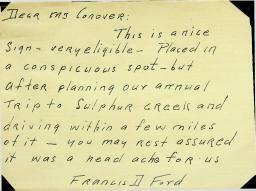 Dear Mr Conover:
This is a nice
Sign - very eligible - Placed in
a conspicuous spot - but
after planning our annual
Trip to Sulphur Creek and
driving within a few miles
of it - you may rest assured
it was a head ache for us
Francis D Ford